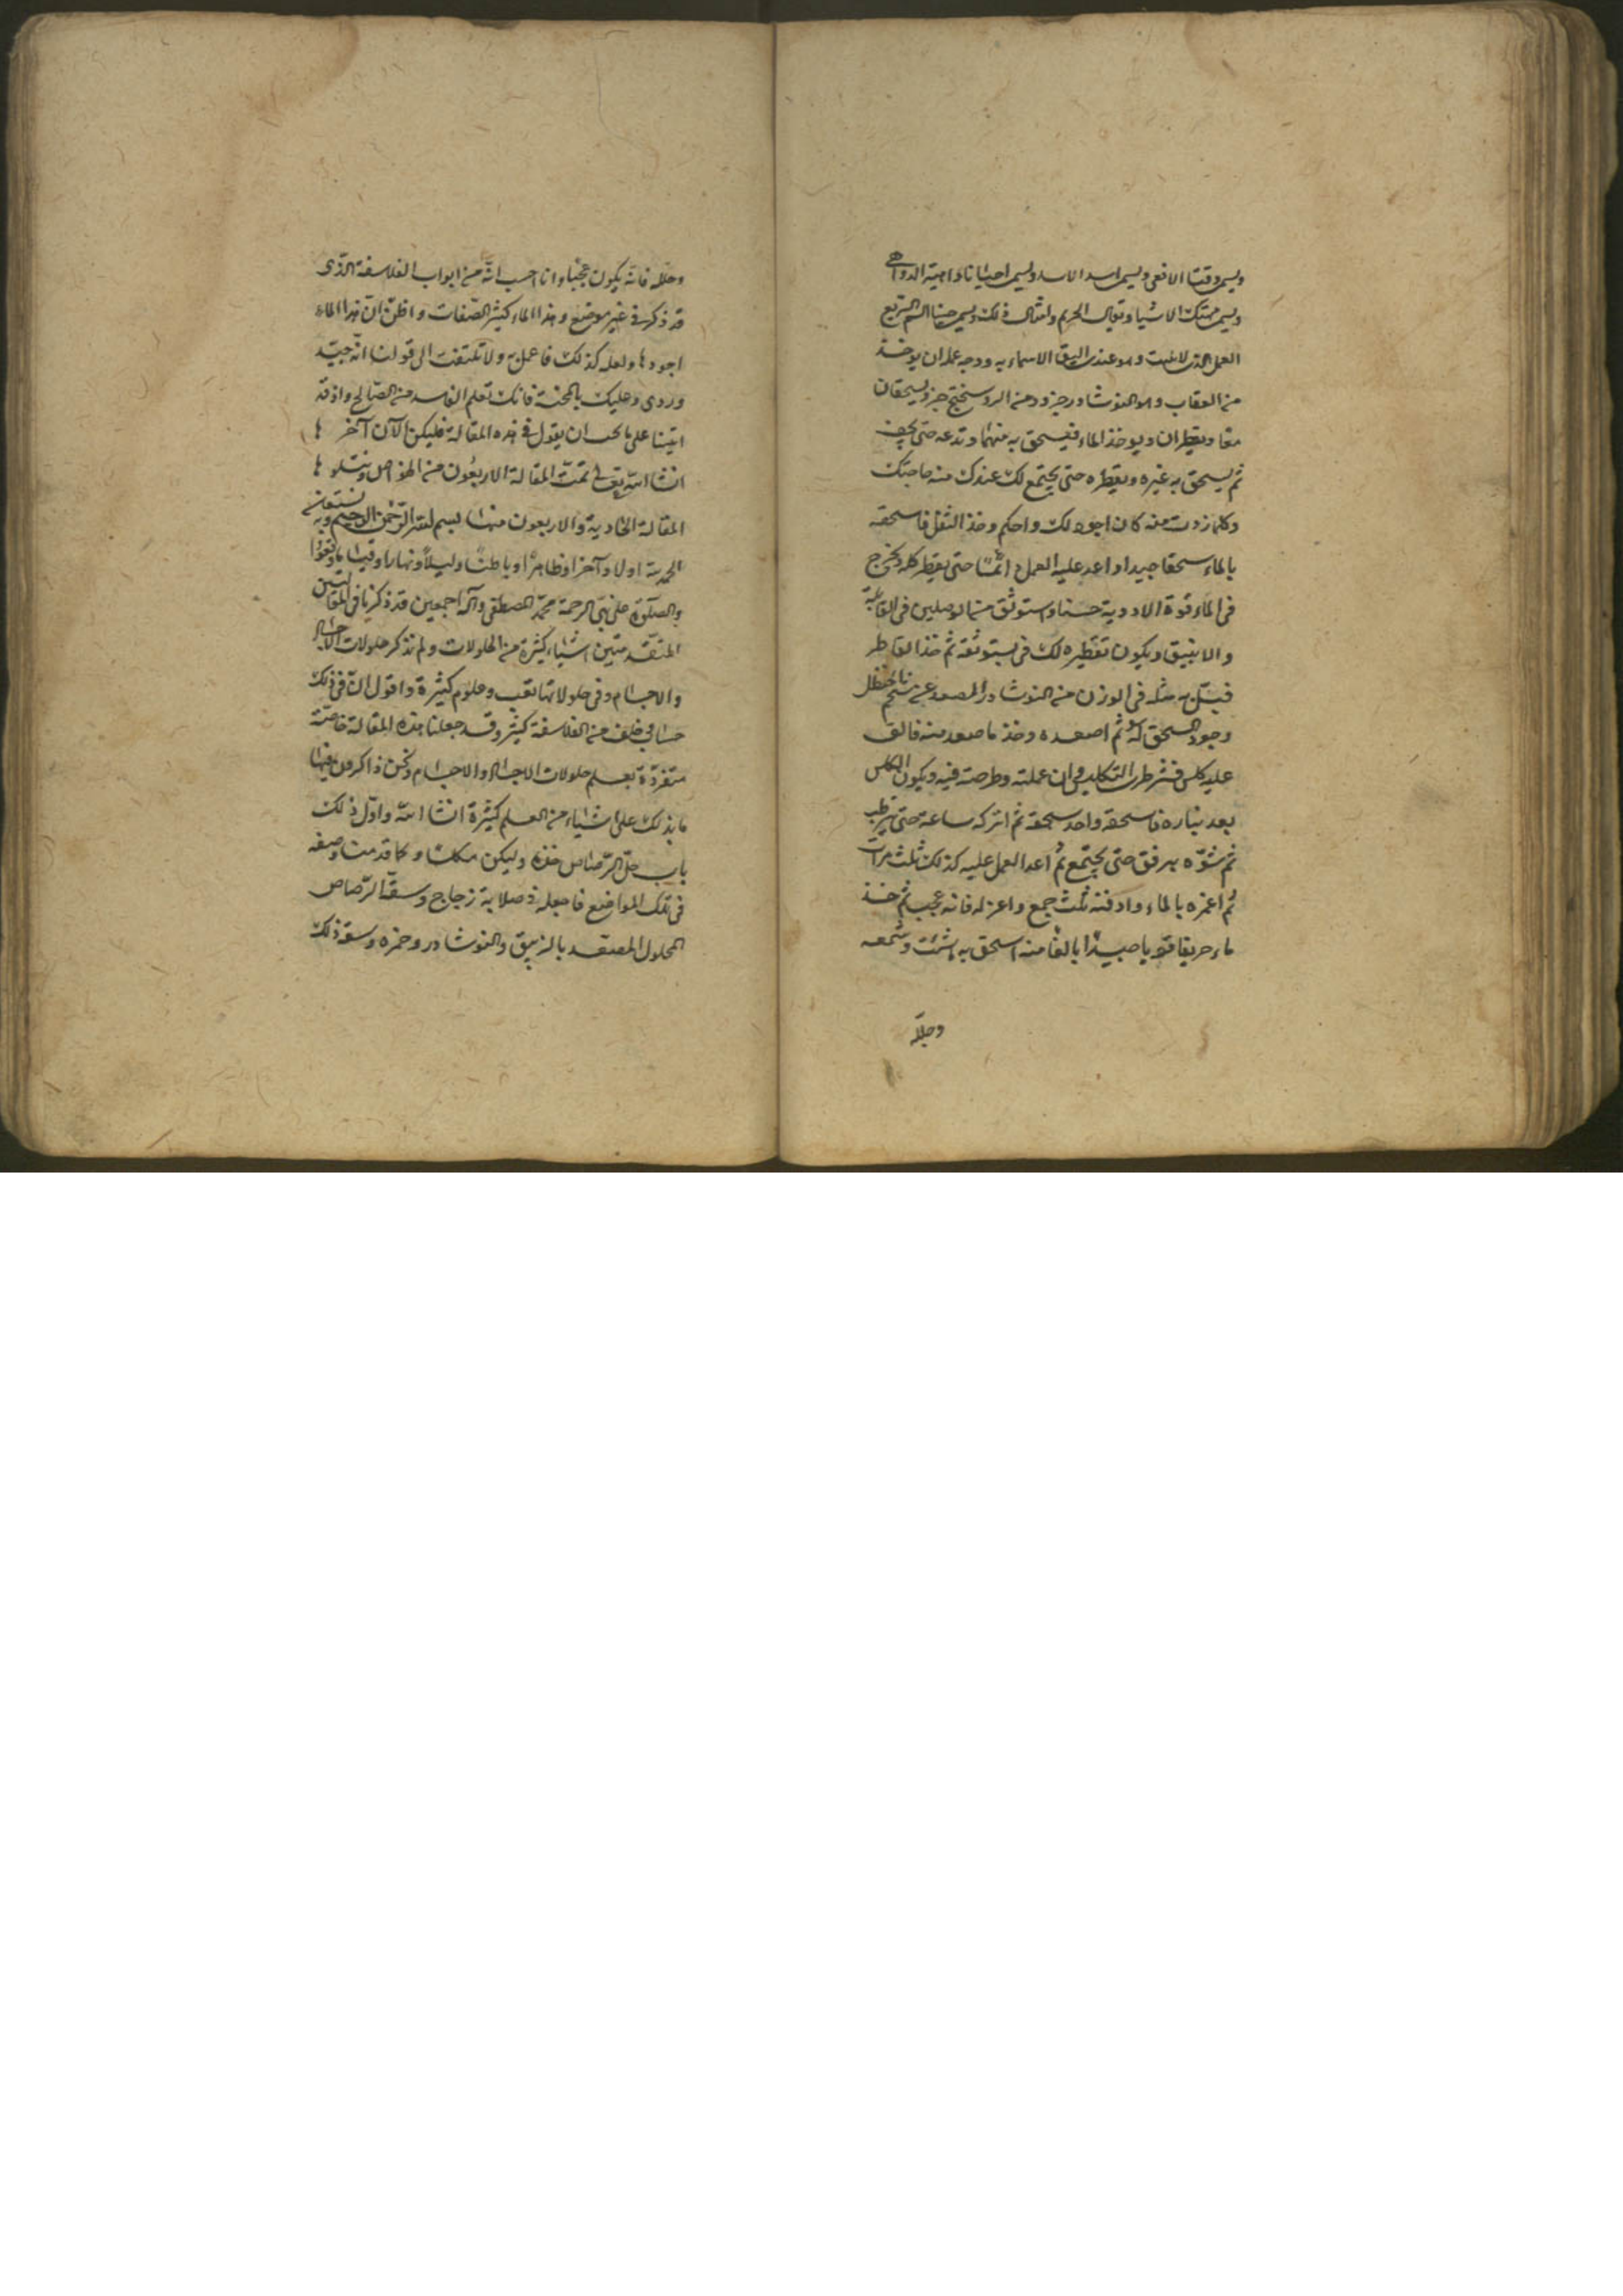 ويسمى وقتا الافعى ويسمى اسد الاسد ويسمى احيانا داهية الدواهى
ويسمى مهتك الاشيا وقتال الحريم وامثال ذلك ويسمى حينا السم السريع
العمل الذى لا يلبث وهو عندى اليق الاسماء به ووجه عمله ان يوخذ
من العقاب وهو النوشادر جزء ومن الروسختج جزء ويسحقان
معا ويقطران ويوخذ الماء فيسحق به منهما وتدعه حتى يجف
ثم يسحق به غيره ويقطره حتى يجتمع لك عندك منه حاجتك
وكلما زدت منه كان اجود لك واحكم وخذ الثفل فاسحقه
بالماء سحقا جيدا واعد عليه العمل دائما حتى يقطر كله ويخرج
فى الماء قوة الادوية حسنا وستوثق من الوصلين فى القابلة
والانبيق ويكون تقطيره لك فى بستوقة ثم خذ القاطر
فبل به مثله فى الوزن من النوشادر المصعد عن شحم الحنظل
وجود السحق له ثم اصعده وخذ ما صعد منه فالق
عليه كلس قشر
بعد بناره فاسحقه واحد سحقه ثم اتركه ساعة حتى يترطب
ثم شوه برفق حتى يجتمع ثم اعد العمل عليه كذلك ثلث مرات
ثم اغمره بالماء وادفنه ثلث جمع واعزله فانه عجيب ثم خذ
ماء حريفا قويا منه اسحق به ما شئت وشمعه
وحلله
وحلله فانه يكون عجبا وانا احسب انه من ابواب الفلاسفة الذى
قد ذكر فى غير موضع وهذا الماء كثير الصفات واظن ان هذا الماء
اجودها ولعله كذلك فاعمل به ولا تلتفت الى قولنا انه جيد
وردى وعليك بالمحنة فانك تعلم الفاسد من الصالح واذ قد
اتينا على ما يجب ان يقول فى هذه المقالة فليكن الآن آخرها
انشا الله تعالى تمت المقالة الاربعون من الخواص ويتلوها
المقالة الحادية والاربعون منها بسم الله الرحمن الرحيم وبه نستعين
الحمد لله اولا وآخرا وظاهرا وباطنا وليلا ونهارا وقياما وقعودا
والصلوة على نبى الرحمة محمد المصطفى وآله اجمعين قد ذكرنا فى المقالتين
المتقدمتين اشياء كثيرة من المحلولات ولم نذكر حلولات الاحجار
والاجسام وفى حلولاتها تعب وعلوم كثيرة واقول ان فى ذلك
من الفلاسفة كثير وقد جعلنا هذه المقالة خاصة
متفردة بعلم حلولات الاحجار والاجسام ونحن ذاكرون فيها
ما يدلك على اشياء من العلم كثيرة انشا الله واول ذلك
باب حل الرصاص خذه وليكن مكلسا وكما قدمنا وصفه
فى تلك المواضع فاجعله فى صلاية زجاج وسقه الرصاص
المحلول المصعد بالزيبق والنوشادر وخمره وسقه ذلك